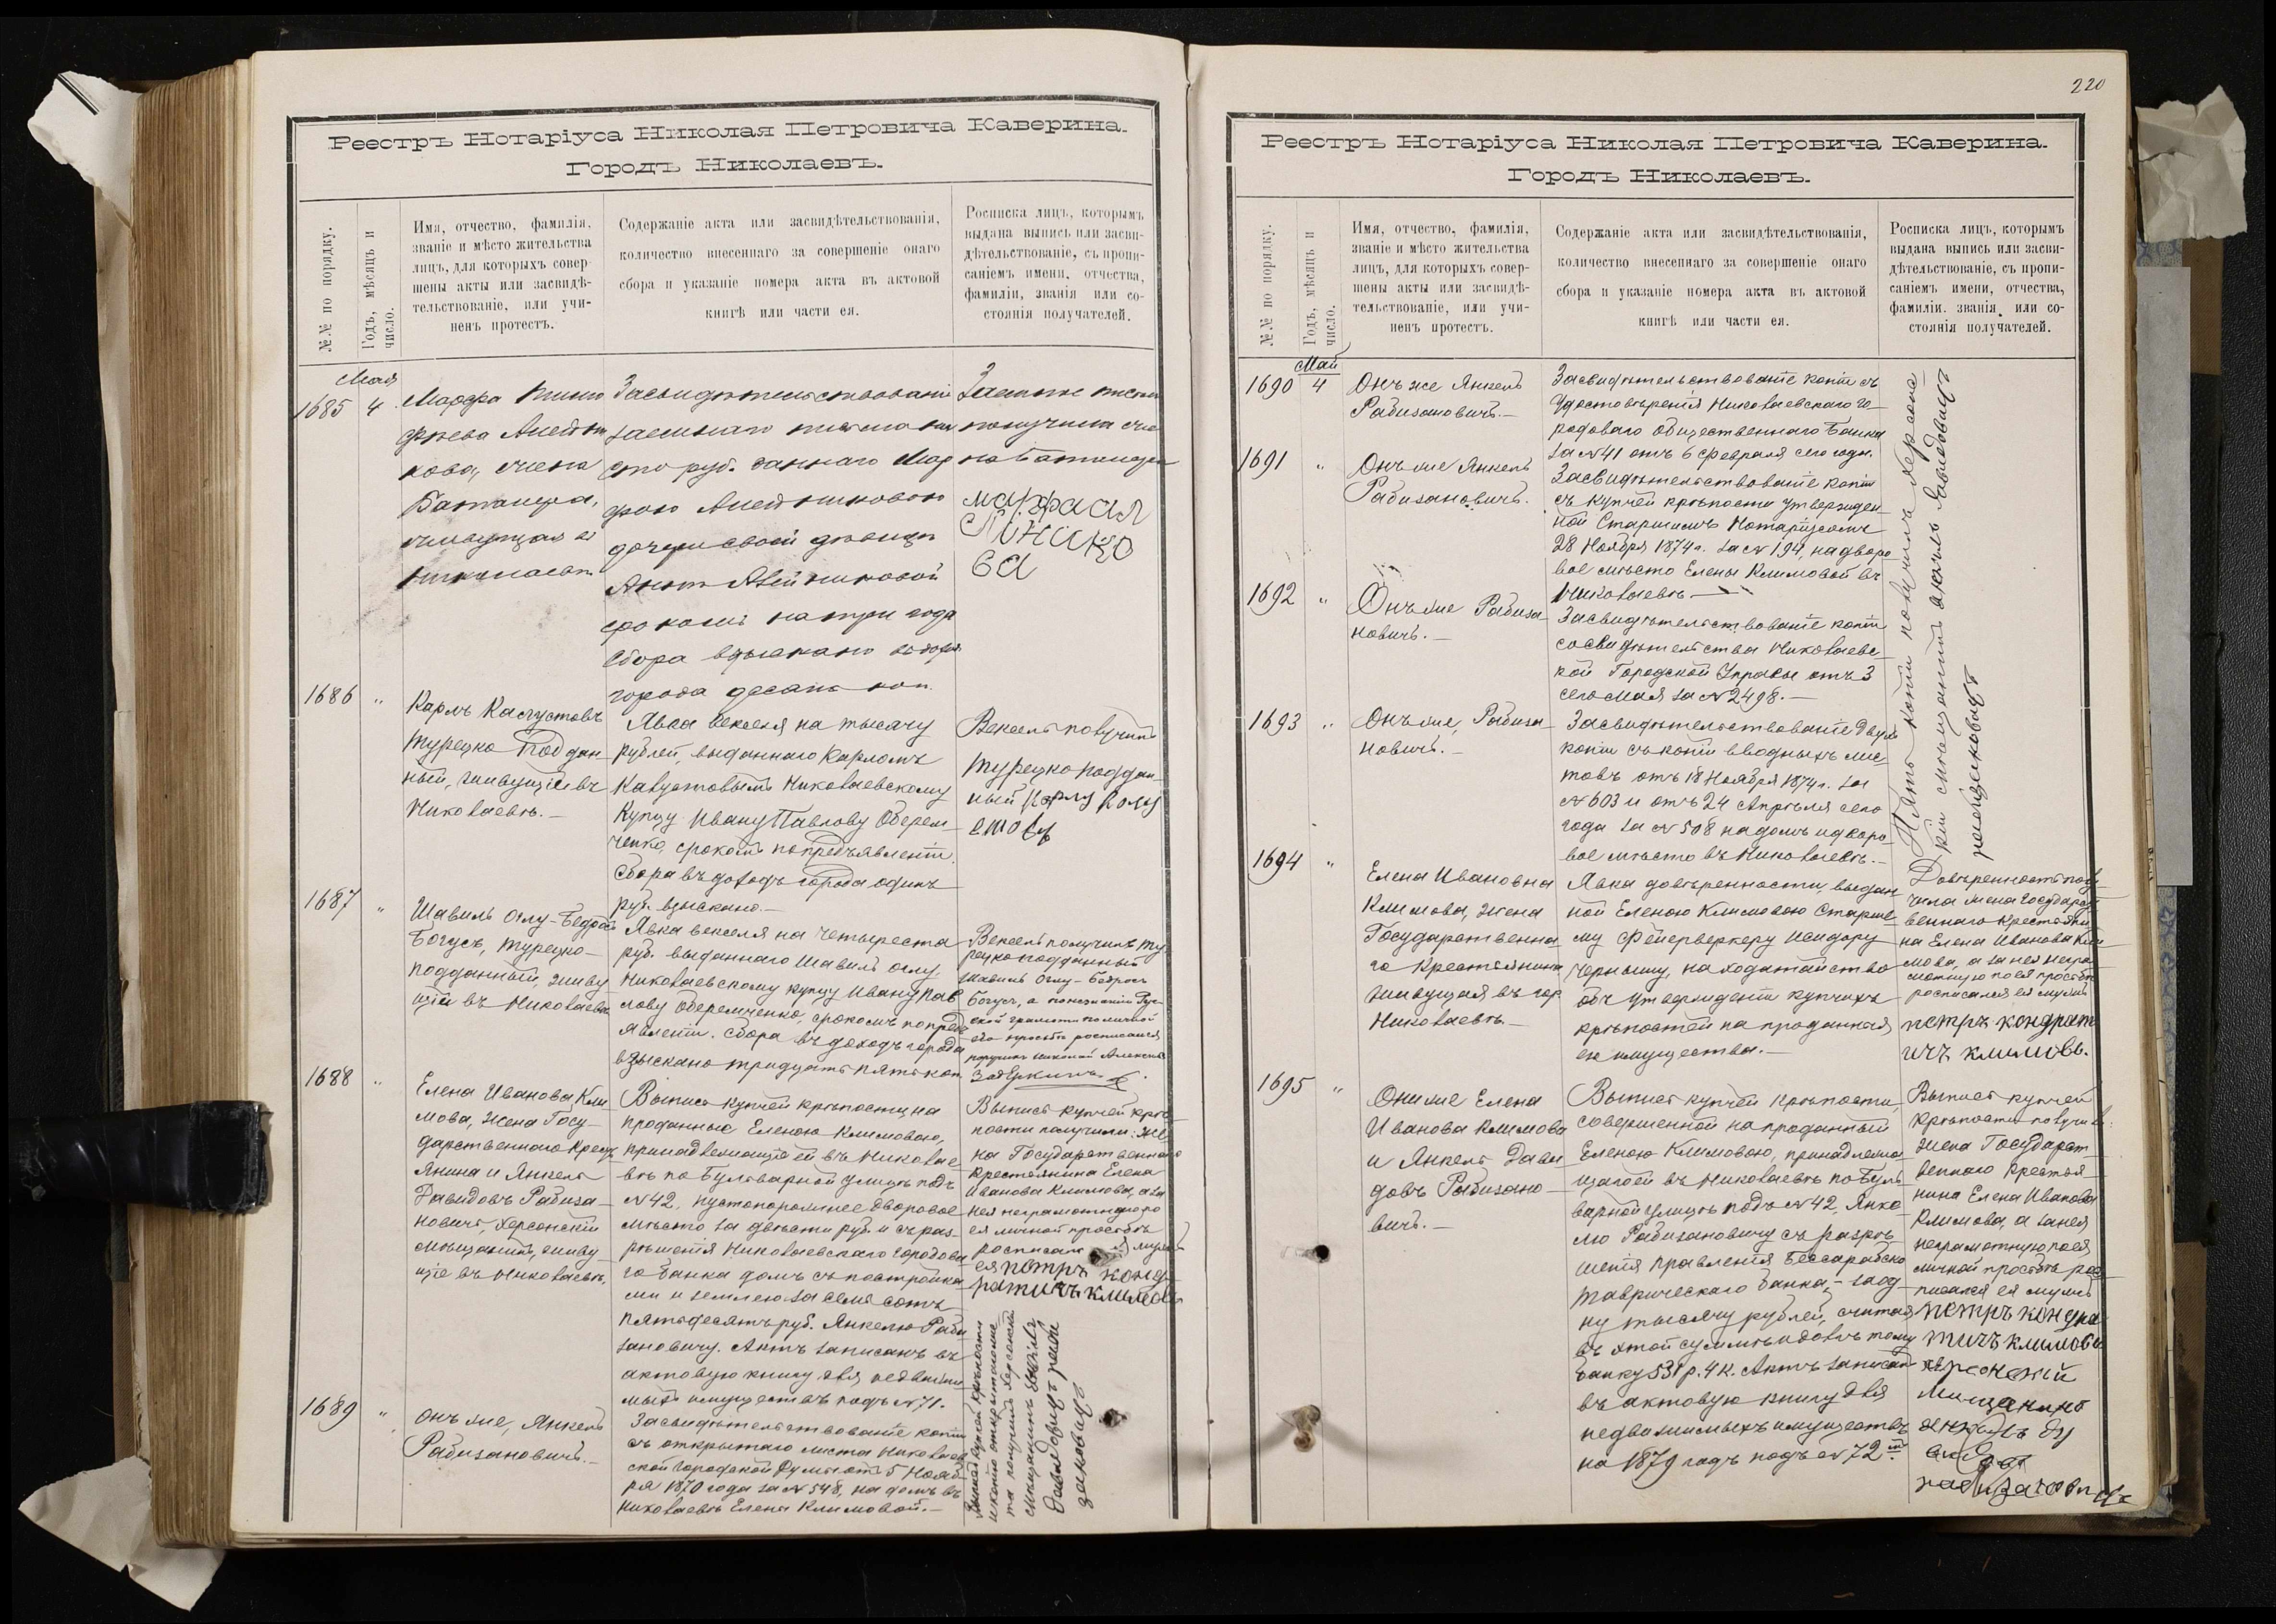 Реестръ Нотаріуса Николая Петровича Каверина.
Городъ Николаевъ.
№№ по порядку.
Годъ, мѣсяцъ и
число.
Имя, отчество, фамилія,
званіе и мѣсто жительства
лицъ, для которыхъ совер-
шены акты или засвидѣ-
тельствованіе, или учи-
ненъ протестъ.
Содержаніе акта или засвидѣтельствованія,
количество внесеннаго за совершеніе онаго
сбора и указаніе номера акта въ актовой
книгѣ или части ея.
Росписка лицъ, которымъ
выдана выпись или засви-
дѣтельствованіе, съ пропи-
саніемъ имени, отчества,
фамиліи, званія или со-
стоянія получателей.
Мая
1685 4
Марфа
жена
Баталера,
живущая въ
Николаевѣ
Засвидѣтельствованіе
заемнаго письма на
сто руб. даннаго Мар
фою
дочери своей дѣвицѣ
срокомъ на три года
Сбора взыскано въ доходъ
города десять коп.
Заемное письмо
получила
1686 "
Карлъ
Турецко Поддан
ный, живущій въ
Николаевѣ.—
Явка векселя на тысячу
рублей, выданнаго Карломъ
Николаевскому
Купцу Ивану Павлову Оберем-
ченко, срокомъ по предъявленіи.
Сбора въ доходъ города одинъ
руб. взыскано.—
Вексель получилъ
турецко поддан
ный
1687 "
Шавиль Оглу-Бедросъ
Богусъ, Турецко-
подданный, живу
щій въ Николаевѣ
Явка векселя на четыреста
руб. выданнаго Шавиль Оглу
Николаевскому купцу Ивану Пав
лову Оберемченко, срокомъ по предъ
явленіи. Сбора въ доходъ города
взыскано тридцать пять коп.
Вексель получилъ ту
рецко подданный
Шавиль Оглу-Бедросъ
Богусъ, а по незнанію Рус-
ской грамоты по личной
его просьбѣ росписался
поручикъ Николай Алексѣевъ
1688 "
Елена Иванова Кли
мова, жена Госу-
дарственнаго Крест
янина и Янкель
Давидовъ Рабиза-
новичъ, Херсонскій
Мѣщанинъ, живу
щіе въ Николаевѣ.
Выпись купчей крѣпости на
проданные Еленою Климовою,
принадлежащіе ей въ Николае-
вѣ по Бульварной улицѣ подъ
№42, пустопорожнее дворовое
мѣсто за двѣсти руб. и съ раз-
рѣшенія Николаевскаго Городска
го банка домъ съ постройка
ми и землею за семь сотъ
пятьдесятъ руб. Янкелю Раби
зановичу. Актъ записанъ въ
актовую книгу для недвижи
мыхъ имуществъ подъ №71.
Выпись купчей крѣ-
пости получили: же-
на Государственнаго
Крестьянина Елена
Иванова Климова, а за
нея неграмотную по
ея личной просьбѣ
росписался мужъ
ея петръ конд-
ратичъ климовъ
1689 "
Онъ же, Янкель
Рабизановичъ.—
Засвидѣтельствованіе копіи
съ открытаго листа Николаев
ской Городской Думы отъ 5 Нояб-
ря 1870 года за №548, на домъ въ
Николаевѣ Елены Климовой.—
220
Реестръ Нотаріуса Николая Петровича Каверина.
Городъ Николаевъ.
№№ по порядку.
Годъ, мѣсяцъ и
число.
Имя, отчество, фамилія,
званіе и мѣсто жительства
лицъ, для которыхъ совер-
шены акты или засвидѣ-
тельствованіе, или учи-
ненъ протестъ.
Содержаніе акта или засвидѣтельствованія,
количество внесеннаго за совершеніе онаго
сбора и указаніе номера акта въ актовой
книгѣ или части ея.
Росписка лицъ, которымъ
выдана выпись или засви-
дѣтельствованіе, съ пропи-
саніемъ имени, отчества,
фамиліи. званія или со-
стоянія получателей.
Май
1690 4
Онъ же Янкель
Рабизановичъ.—
Засвидѣтельствованіе копіи съ
Удостовѣренія Николаевскаго Го-
родоваго Общественнаго Банка
за №41 отъ 6 Февраля сего года.
1691 "
Онъ же Янкель
Рабизановичъ.
Засвидѣтельствованіе копіи
съ купчей крѣпости утвержден-
ной Старшимъ Нотаріусомъ
28 Ноября 1874 г. за №194, на дворо
вое мѣсто Елены Климовой въ
Николаевѣ.—
1692 "
Онъ же Рабиза
новичъ.—
Засвидѣтельствованіе копіи
со свидѣтельства Николаевс-
кой Городской Управы отъ 3
сего Мая за №2498.—
1693 "
Онъ же, Рабиза-
новичъ.—
Засвидѣтельствованіе Двухъ
копій съ копій вводныхъ лис-
товъ отъ 18 Ноября 1874 г. за
№603 и отъ 24 Апрѣля сего
года за №508 на домъ и дворо-
вое мѣсто въ Николаевѣ.—
Пять копій получилъ Херсон-
скій мѣщанинъ
1694 "
Елена Ивановна
Климова, жена
Государственна
го Крестьянина
живущая въ гор.
Николаевѣ.—
Явка довѣренности, выдан
ной Еленою Климовою Старше-
му Фейерверкеру Исидору
Чернышу, на ходатайство
объ утвержденіи купчихъ
крѣпостей на проданныя
ею имущества.—
Довѣренность полу-
чила жена Государст
веннаго крестьяни
на Елена Иванова Кли-
мова, а за нея негра-
мотную по ея просьбѣ
росписался ея мужъ
петръ кондрат
ичъ климовъ.
1695 "
Они же Елена
Иванова Климова
и Янкель Дави
довъ Рабизано-
вичъ.—
Выпись купчей крѣпости,
совершенной на проданный
Еленою Климовою, принадлежа
щагоей въ Николаевѣ по Буль
варной улицѣ подъ №42, Янке-
лю Рабизановичу съ разрѣ-
шенія Правленія Бессарабско-
Таврическаго Банка,— за од
ну тысячу рублей, считая
въ этой суммѣ и долгъ тому
банку 531 р. 4 к. Актъ записанъ
въ актовую книгу для
недвижимыхъ имуществъ
на 1879 годъ подъ №72.
Выпись купчей
Крѣпости получили:
жена Государст
веннаго Крестья-
нина Елена Иванова
Климова, а за нея
неграмотную по ея
личной просьбѣ рос-
писался ея мужъ
петръ кондра
тичъ климовъ
херсонскій
Мищанинъ